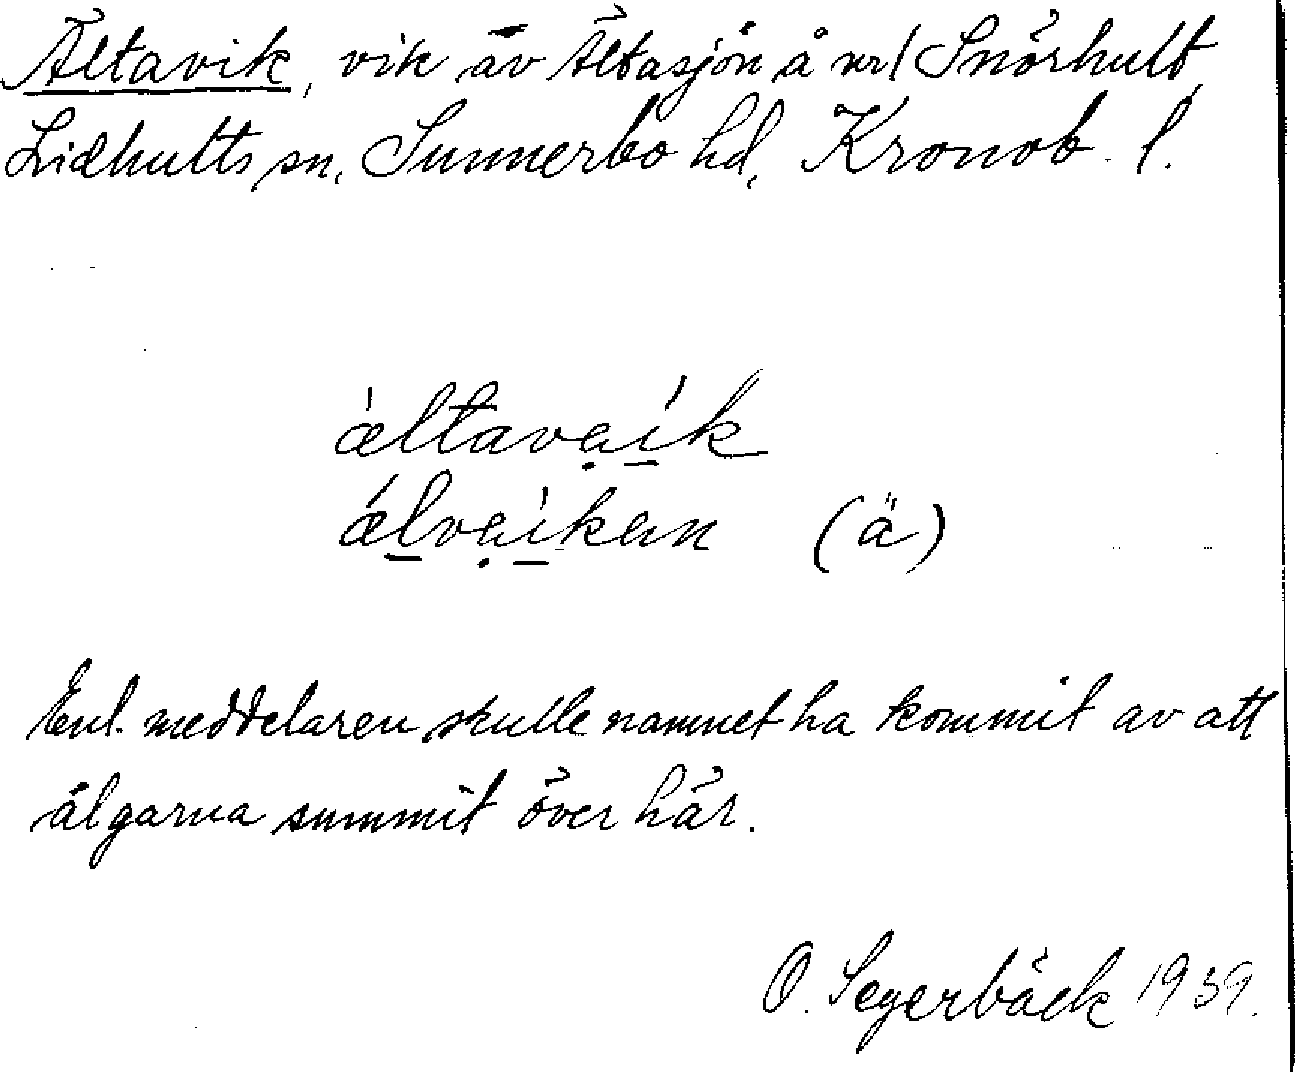 Ältavik, vik av Ältasjön å nr 1 Snörhult,
Lidhults sn, Sunnerbo hd, Kronob. l.
æ̀ltavại̱k
ǽḻvại̱kan (ä)
Enl. meddelaren skulle namnet ha kommit av att
älgarna summit över här.
O. Segerbäck 1939.